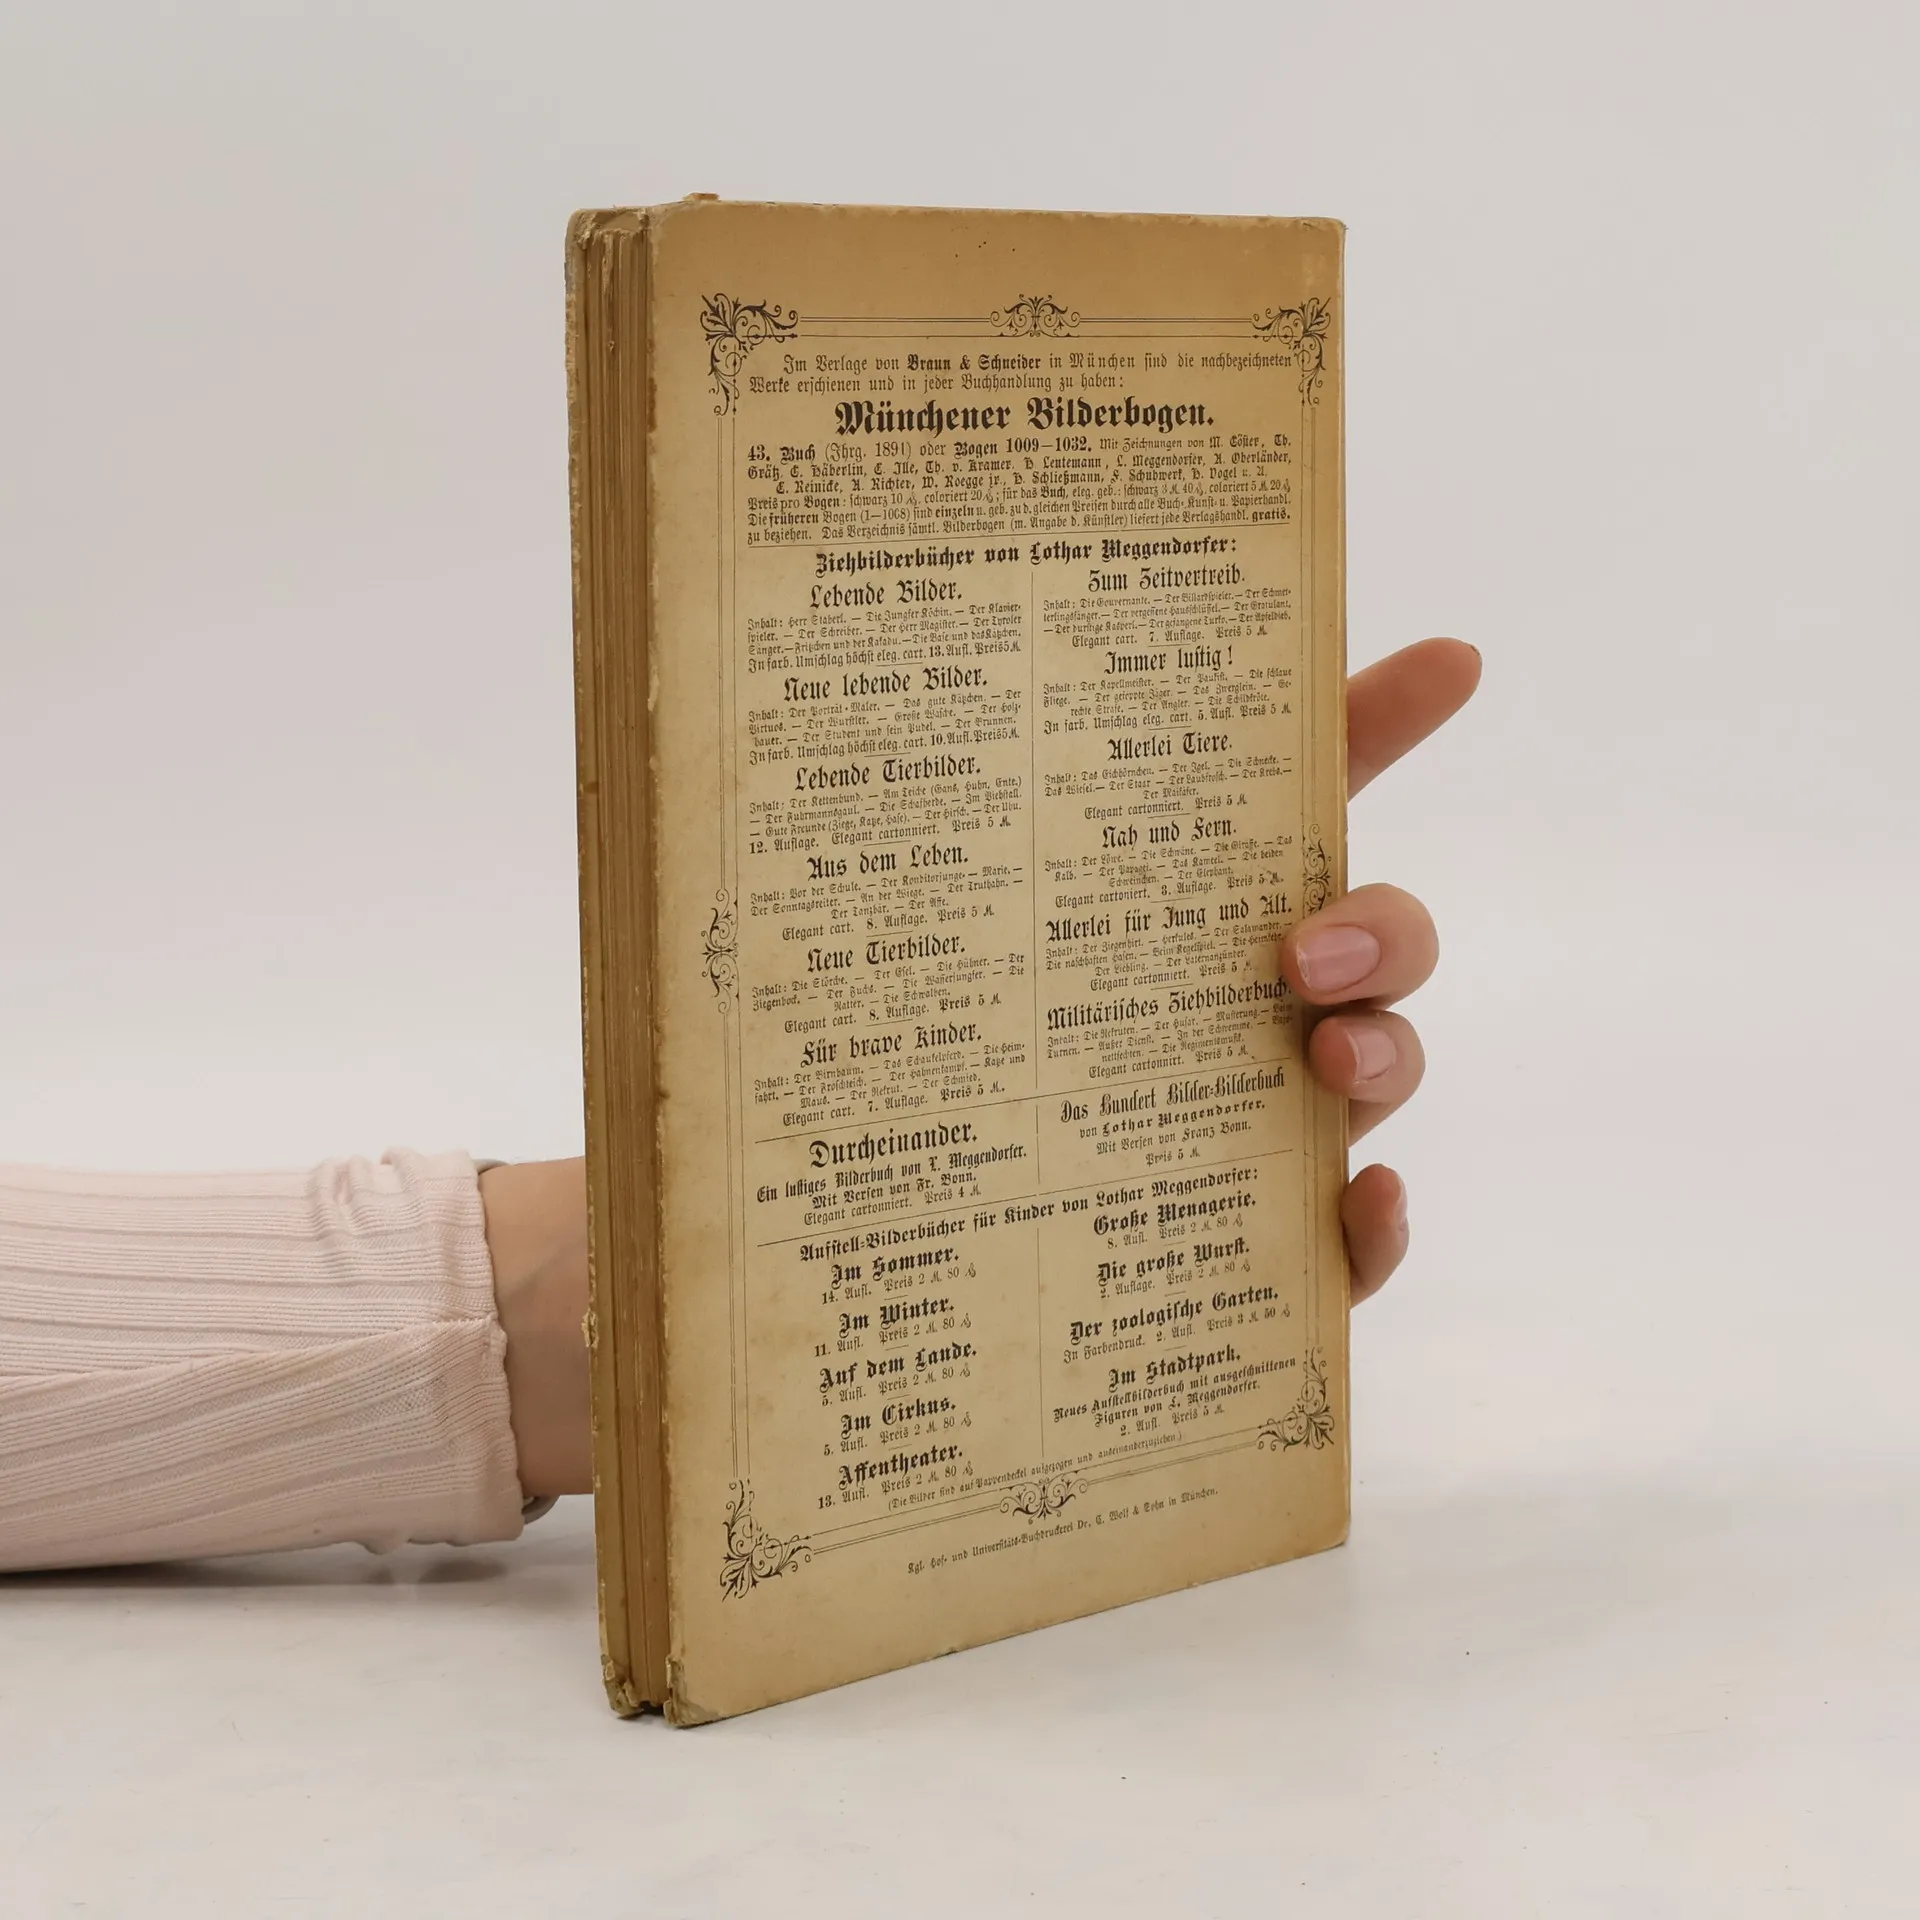 Im Verlage von Braun & Schneider in München sind die nachbezeichneten
Werke erschienen und in jeder Buchhandlung zu haben:
Münchener Bilderbogen.
43. Buch (Jhrg. 1891) oder Bogen 1009—1032. Mit Zeichnungen von M. Cöster, Th.
Grätz, E. Häberlin, C. Ille, Th. v. Kramer, H. Leutemann, L. Meggendorfer, A. Oberländer,
C. Reinicke, A. Richter, W. Roegge jr., H. Schließmann, F. Schubwerk, H. Vogel u. A.
Preis pro Bogen: schwarz 10 ₰, coloriert 20 ₰; für das Buch, eleg. geb.: schwarz 3 ℳ 40 ₰, coloriert 5 ℳ 20 ₰
Die früheren Bogen (1—1008) sind einzeln u. geb. zu d. gleichen Preisen durch alle Buch-, Kunst- u. Papierhandl.
zu beziehen. Das Verzeichnis sämtl. Bilderbogen (m. Angabe d. Künstler) liefert jede Verlagshandl. gratis.
Ziehbilderbücher von Lothar Meggendorfer:
Lebende Bilder.
Inhalt: Herr Staberl. — Die Jungfer Köchin. — Der Klavier-
spieler. — Der Schreiber. — Der Herr Magister. — Der Tyroler
Sänger. — Fritzchen und der Kakadu. — Die Base und das Kätzchen.
In farb. Umschlag höchst eleg. cart. 13. Aufl. Preis 5 ℳ.
Neue lebende Bilder.
Inhalt: Der Porträt-Maler. — Das gute Kätzchen. — Der
Virtuos. — Der Wurstler. — Große Wäsche. — Der Holz-
hauer. — Der Student und sein Pudel. — Der Brunnen.
In farb. Umschlag höchst eleg. cart. 10. Aufl. Preis 5 ℳ.
Lebende Tierbilder.
Inhalt: Der Kettenhund. — Am Teiche (Gans, Huhn, Ente.)
— Der Fuhrmannsgaul. — Die Schafherde. — Im Viehstall.
— Gute Freunde (Ziege, Katze, Hase). — Der Hirsch. — Der Uhu.
12. Auflage. Elegant cartonniert. Preis 5 ℳ
Aus dem Leben.
Inhalt: Vor der Schule. — Der Konditorjunge. — Marie. —
Der Sonntagsreiter. — An der Wiege. — Der Truthahn. —
Der Tanzbär. — Der Affe.
Elegant cart. 8. Auflage. Preis 5 ℳ
Neue Tierbilder.
Inhalt: Die Störche. — Der Esel. — Die Hühner. — Der
Ziegenbock. — Der Fuchs. — Die Wasserjungfer. — Die
Natter. — Die Schwalben.
Elegant cart. 8. Auflage. Preis 5 ℳ
Für brave Kinder.
Inhalt: Der Birnbaum. — Das Schaukelpferd. — Die Heim-
fahrt. — Der Froschteich. — Der Hahnenkampf. — Katze und
Maus. — Der Rekrut. — Der Schmied.
Elegant cart. 7. Auflage. Preis 5 ℳ.
Zum Zeitvertreib.
Inhalt: Die Gouvernante. — Der Billardspieler. — Der Schmet-
terlingsfänger. — Der vergessene Hausschlüssel. — Der Gratulant.
— Der durstige Kasperl. — Der gefangene Turko. — Der Apfeldieb.
Elegant cart. 7. Auflage. Preis 5 ℳ
Immer lustig!
Inhalt: Der Kapellmeister. — Der Paukist. — Die schlaue
Fliege. — Der gefoppte Jäger. — Das Zwerglein. — Ge-
rechte Strafe. — Der Angler. — Die Schildkröte.
In farb. Umschlag eleg. cart. 5. Aufl. Preis 5 ℳ
Allerlei Tiere.
Inhalt: Das Eichhörnchen. — Der Igel. — Die Schnecke. —
Das Wiesel. — Der Staar — Der Laubfrosch. — Der Krebs. —
Der Maikäfer.
Elegant cartonniert. Preis 5 ℳ
Nah und Fern.
Inhalt: Der Löwe. — Die Schwäne. — Die Giraffe. — Das
Kalb. — Der Papagei. — Das Kameel. — Die beiden
Schweinchen. — Der Elephant.
Elegant cartoniert. 3. Auflage. Preis 5 ℳ
Allerlei für Jung und Alt.
Inhalt: Der Ziegenhirt. — Herkules. — Der Salamander. —
Die naschhaften Hasen. — Beim Kegelspiel. — Die Heimkehr.
Der Liebling. — Der Laternanzünder.
Elegant cartonniert. Preis 5 ℳ
Militärisches Ziehbilderbuch.
Inhalt: Die Rekruten. — Der Husar. — Musterung. — Beim
Turnen. — Außer Dienst. — In der Schwemme. — Bajo-
nettfechten. — Die Regimentsmusik.
Elegant cartonnirt. Preis 5 ℳ
Durcheinander.
Ein lustiges Bilderbuch von L. Meggendorfer.
Mit Versen von Fr. Bonn.
Elegant cartonniert. Preis 4 ℳ
Das Hundert Bilder-Bilderbuch
von Lothar Meggendorfer.
Mit Versen von Franz Bonn.
Preis 5 ℳ
Aufstell-Bilderbücher für Kinder von Lothar Meggendorfer:
Im Sommer.
14. Aufl. Preis 2 ℳ 80 ₰
Im Winter.
11. Aufl. Preis 2 ℳ 80 ₰
Auf dem Lande.
5. Aufl. Preis 2 ℳ 80 ₰
Im Cirkus.
5. Aufl. Preis 2 ℳ 80 ₰
Affentheater.
13. Aufl. Preis 2 ℳ 80 ₰
Große Menagerie.
8. Aufl. Preis 2 ℳ 80 ₰
Die große Wurst.
2. Auflage. Preis 2 ℳ 80 ₰
Der zoologische Garten.
In Farbendruck. 2. Aufl. Preis 3 ℳ 50 ₰
Im Stadtpark.
Neues Aufstellbilderbuch mit ausgeschnittenen
Figuren von L. Meggendorfer.
2. Aufl. Preis 5 ℳ
(Die Bilder sind auf Pappendeckel aufgezogen und auseinanderzuziehen.)
Kgl. Hof- und Universitäts-Buchdruckerei Dr. C. Wolf & Sohn in München.